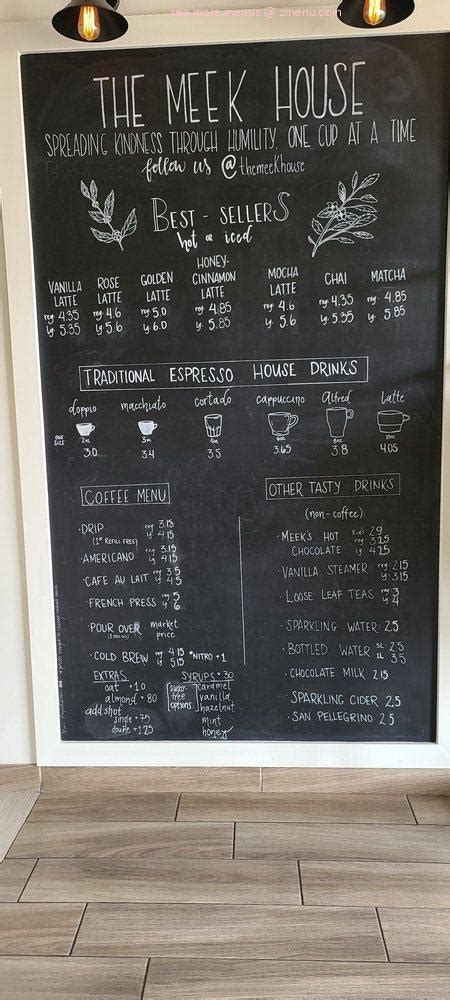 see more menus @ zmenu.com
THE MEEK HOUSE
SPREADING KINDNESS THROUGH HUMILITY, ONE CUP AT A TIME
follow us @themeekhouse
BEST-SELLERS
hot or iced
VANILLA LATTE reg 4.35 lg 5.35
ROSE LATTE reg 4.6 lg 5.6
GOLDEN LATTE reg 5.0 lg 6.0
HONEY-CINNAMON LATTE reg 4.85 lg 5.85
MOCHA LATTE reg 4.6 lg 5.6
CHAI reg 4.35 lg 5.35
MATCHA reg 4.85 lg 5.85
TRADITIONAL ESPRESSO HOUSE DRINKS
doppio macchiato cortado cappuccino alfred latte
ONE SIZE 2oz 3oz 4oz 6oz 8oz 10oz
3.0 3.4 3.5 3.65 3.8 4.05
COFFEE MENU
· DRIP reg 3.15
(1ST REFILL FREE) lg 4.15
· AMERICANO reg 3.15 lg 4.15
· CAFE AU LAIT reg 3.5 lg 4.5
· FRENCH PRESS reg 5 lg 6
· POUR OVER market price
· COLD BREW reg 4.15 lg 5.15 *NITRO +1
EXTRAS
oat +1.0
almond +.80
add shot
single +.75
double +1.25
SYRUPS +.30
sugar-free options
caramel
vanilla
hazelnut
mint
honey
OTHER TASTY DRINKS
(non-coffee)
· MEEK'S HOT CHOCOLATE kids 2.9 reg 3.25 lg 4.25
· VANILLA STEAMER reg 2.15 lg 3.15
· LOOSE LEAF TEAS reg 3 lg 4
· SPARKLING WATER 2.5
· BOTTLED WATER .5L 2.5 1L 3.5
· CHOCOLATE MILK 2.15
· SPARKLING CIDER 2.5
· SAN PELLEGRINO 2.5